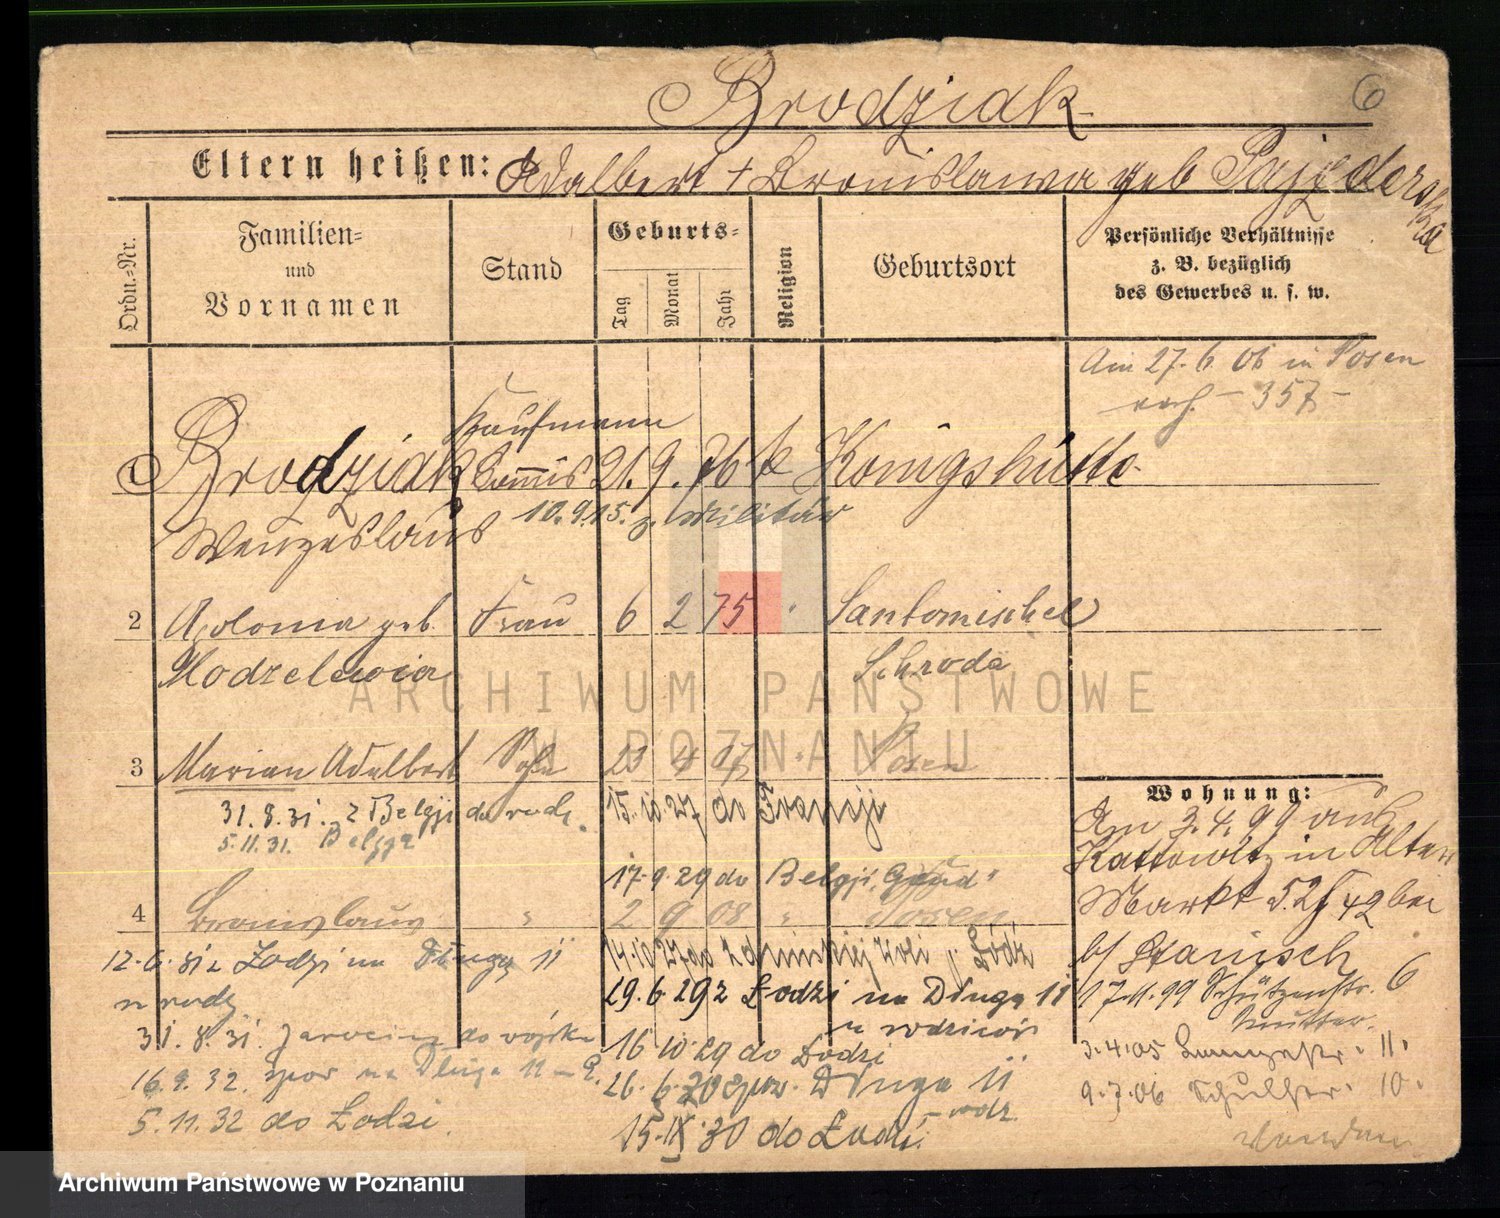 6
Brodziak
Eltern heißen: Adalbert + Bronislawa geb Pajzderska
Ordn.=Nr.
Familien=
und
Vornamen
Stand
Geburts=
Tag
Monat
Jahr
Religion
Geburtsort
Persönliche Verhältnisse
z. B. bezüglich
des Gewerbes u. s. w.
Am 27.6 06 in Posen
- 357 -
Kaufmann
1 Brodziak Commis 21. 9. 76 k Königshütte
Wenzeslaus 10.9.15. z. Militär
2 Apolonia geb. Frau 6 2 75 " Santomischel
Modzelewia Schroda
3 Marian Adalbert Sohn 23 4 07 " Posen
31.8.31. z Belgji do rodz. 15.10.27 do Francji
5.11.31. Belgja
17.9.29 do Belgji, "Gand"
4 Bronislaus " 2 9 08 " Posen
12.6.31 z Łodzi na Długą 11 14.10.27 do Zduńskiej Woli p. Łódź
u rodz 29.6.29 z Łodzi na Długą 11
u rodziców
31.8.31. Jarocina do wojska 16 10.29 do Łodzi
16.9.32. na Długa 11 26.6.30 Długa 11
rodz.
5.11.32 do Łodzi. 15.IX.30 do Łodzi.
Wohnung:
Am 3.4.99 aus
Kattowitz in Alter
Markt 52/42 bei
b/ Stanisch
17.11.99 Schützenstr. 6
Mutter.
3.4.05 11.
9.7.06 Schulstr. 10.
ARCHIWUM PAŃSTWOWE
W POZNANIU
Archiwum Państwowe w Poznaniu